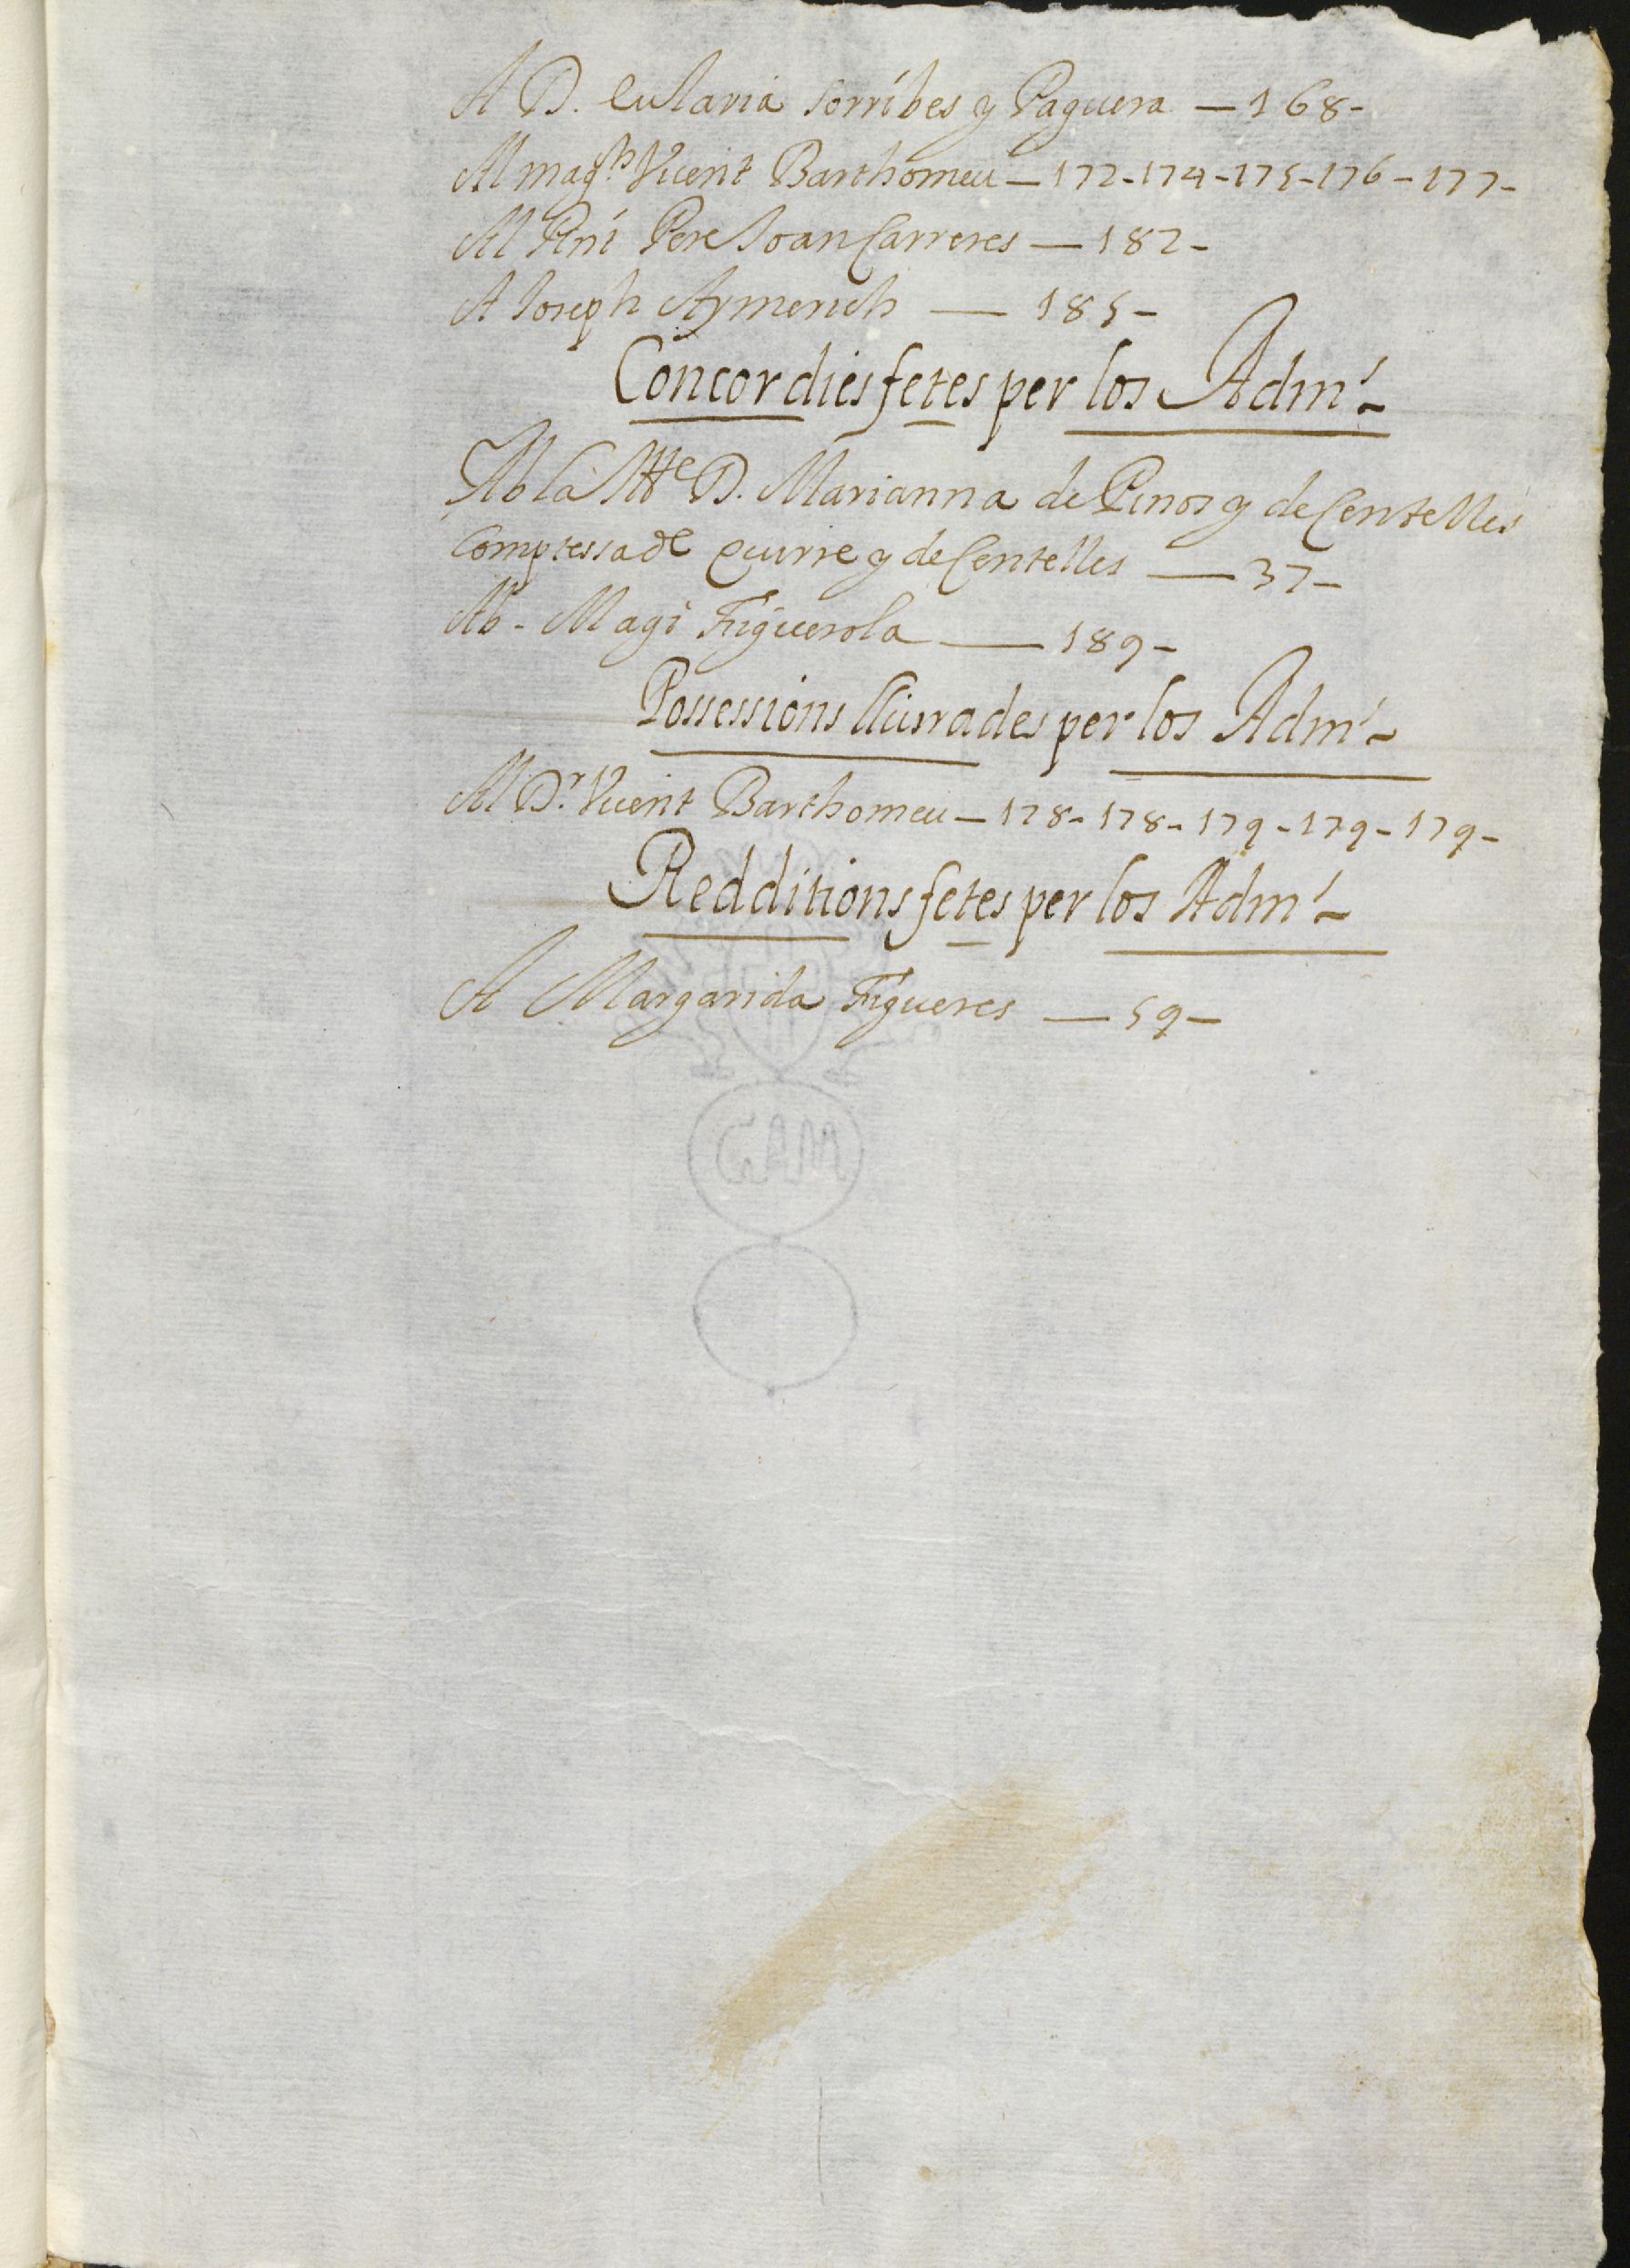 A D. Eularia Sorribes y Paguera — 168-
Al mag.ch Vicent Barthomeu — 172-174-175-176-177-
Al Pere Joan Carreres — 182-
A Joseph Aymerich — 185-
Concordies fetes per los Adm.
Ab la Itte D. Marianna de Pinos y de Centelles
Comptessa de Quirre y de Centelles — 37-
Ab - Magi Figuerola — 189-
Possessions lliurades per los Adm.
Al Dr. Vicent Barthomeu — 178-178-179-179-179-
Redditions fetes per los Adm.
A Margarida Figueres — 59-